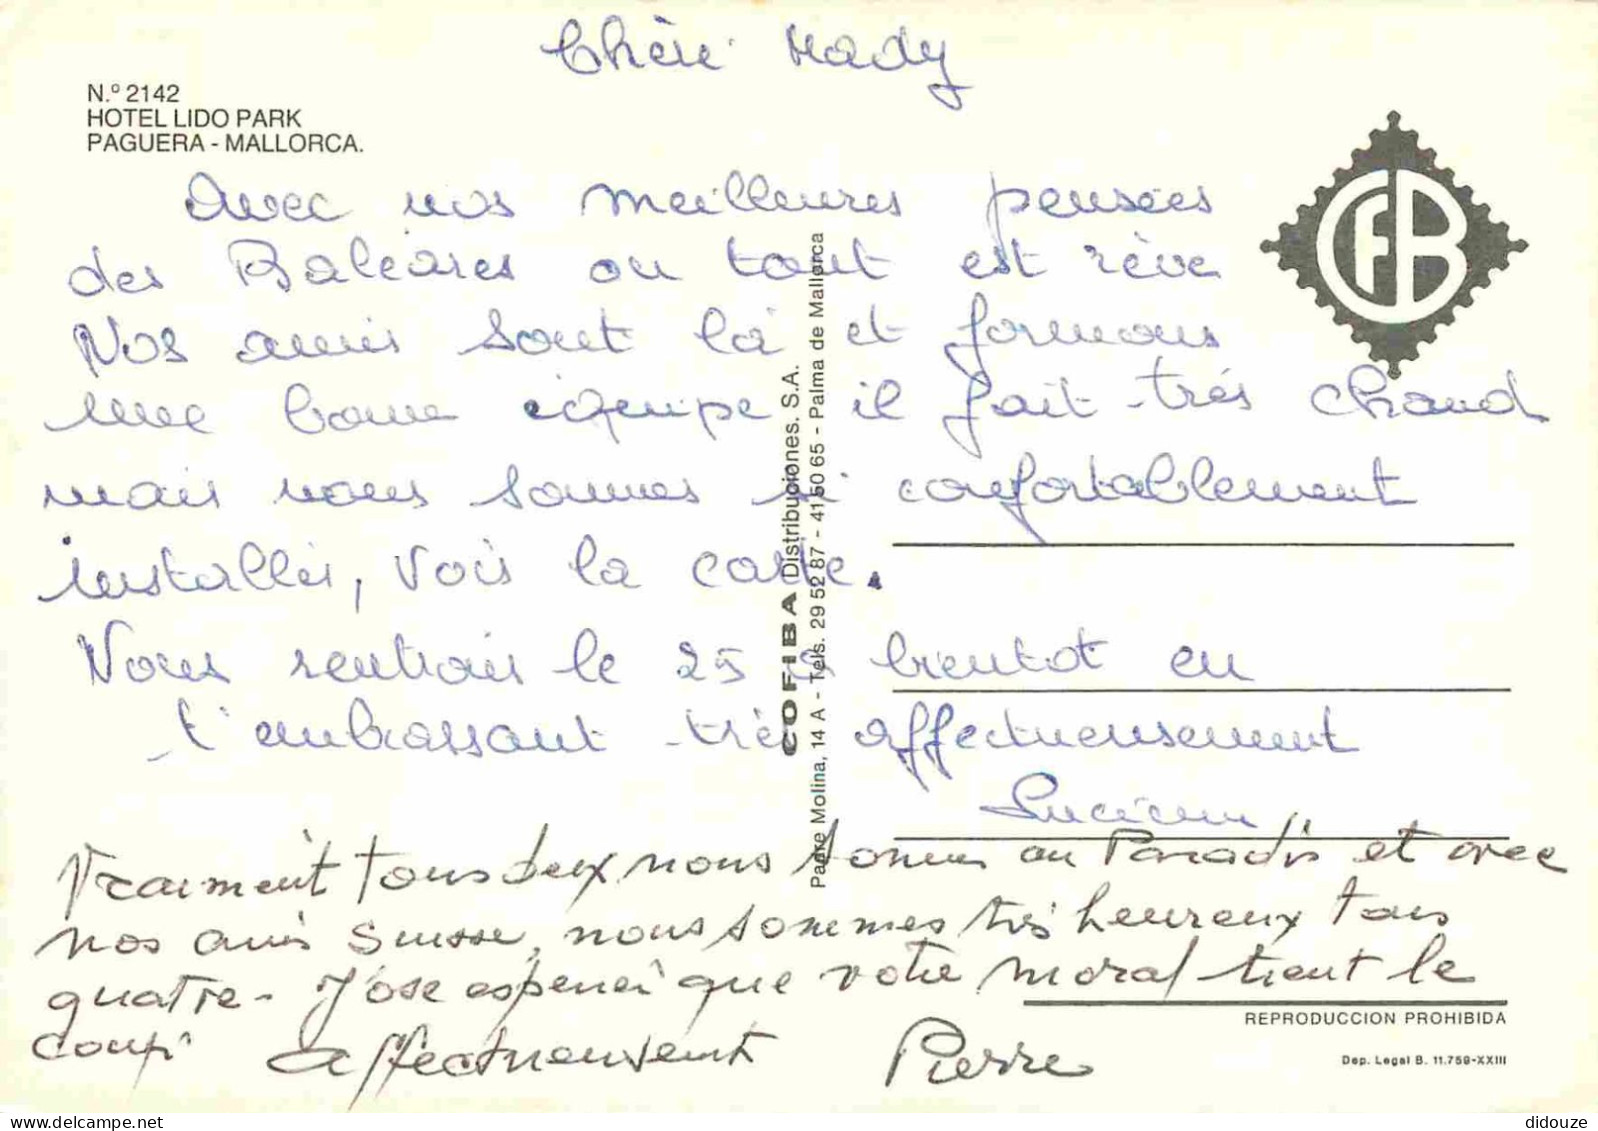 Chère Mady
N.º 2142
HOTEL LIDO PARK
PAGUERA - MALLORCA.
CFB
Avec nos meilleures pensées
des Baléares ou tout est rève
Nos amis sont là et formons
une bonne équipe il fait très chaud
mais nous sommes si confortablement
installés, vois la carte.
Nous rentrons le 25 bientot en
t'embrassant très affectueusement
Lucienne
Vraiment tous deux nous sommes au Paradis et avec
nos amis Suisse, nous sommes très heureux tous
quatre - J'ose espérer que votre moral tient le
coup. affectueusement Pierre
COFIBA Distribuciones. S.A.
Padre Molina, 14 A - Tels. 29 52 87 - 41 50 65 - Palma de Mallorca
REPRODUCCION PROHIBIDA
Dep. Legal B. 11.759-XXIII
didouze